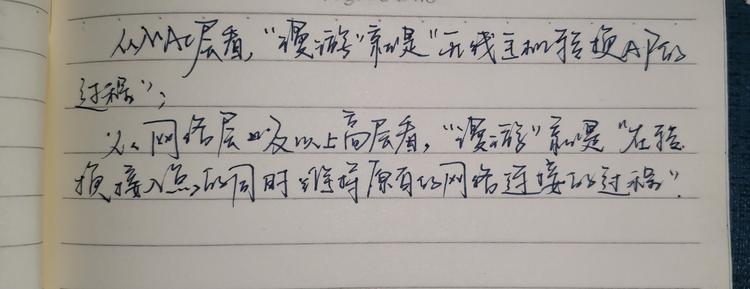 从MAC层看，“漫游”就是“无线主机转换AP的
过程”；
从网络层以及以上高层看，“漫游”就是“在转
换接入点的同时维持原有的网络连接的过程”.